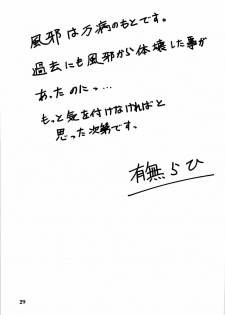 風邪は万病のもとです。
過去にも風邪から体壊した事が
あったのにっ…
もっと気を付けなければと
思った次第です。
有無らひ
29